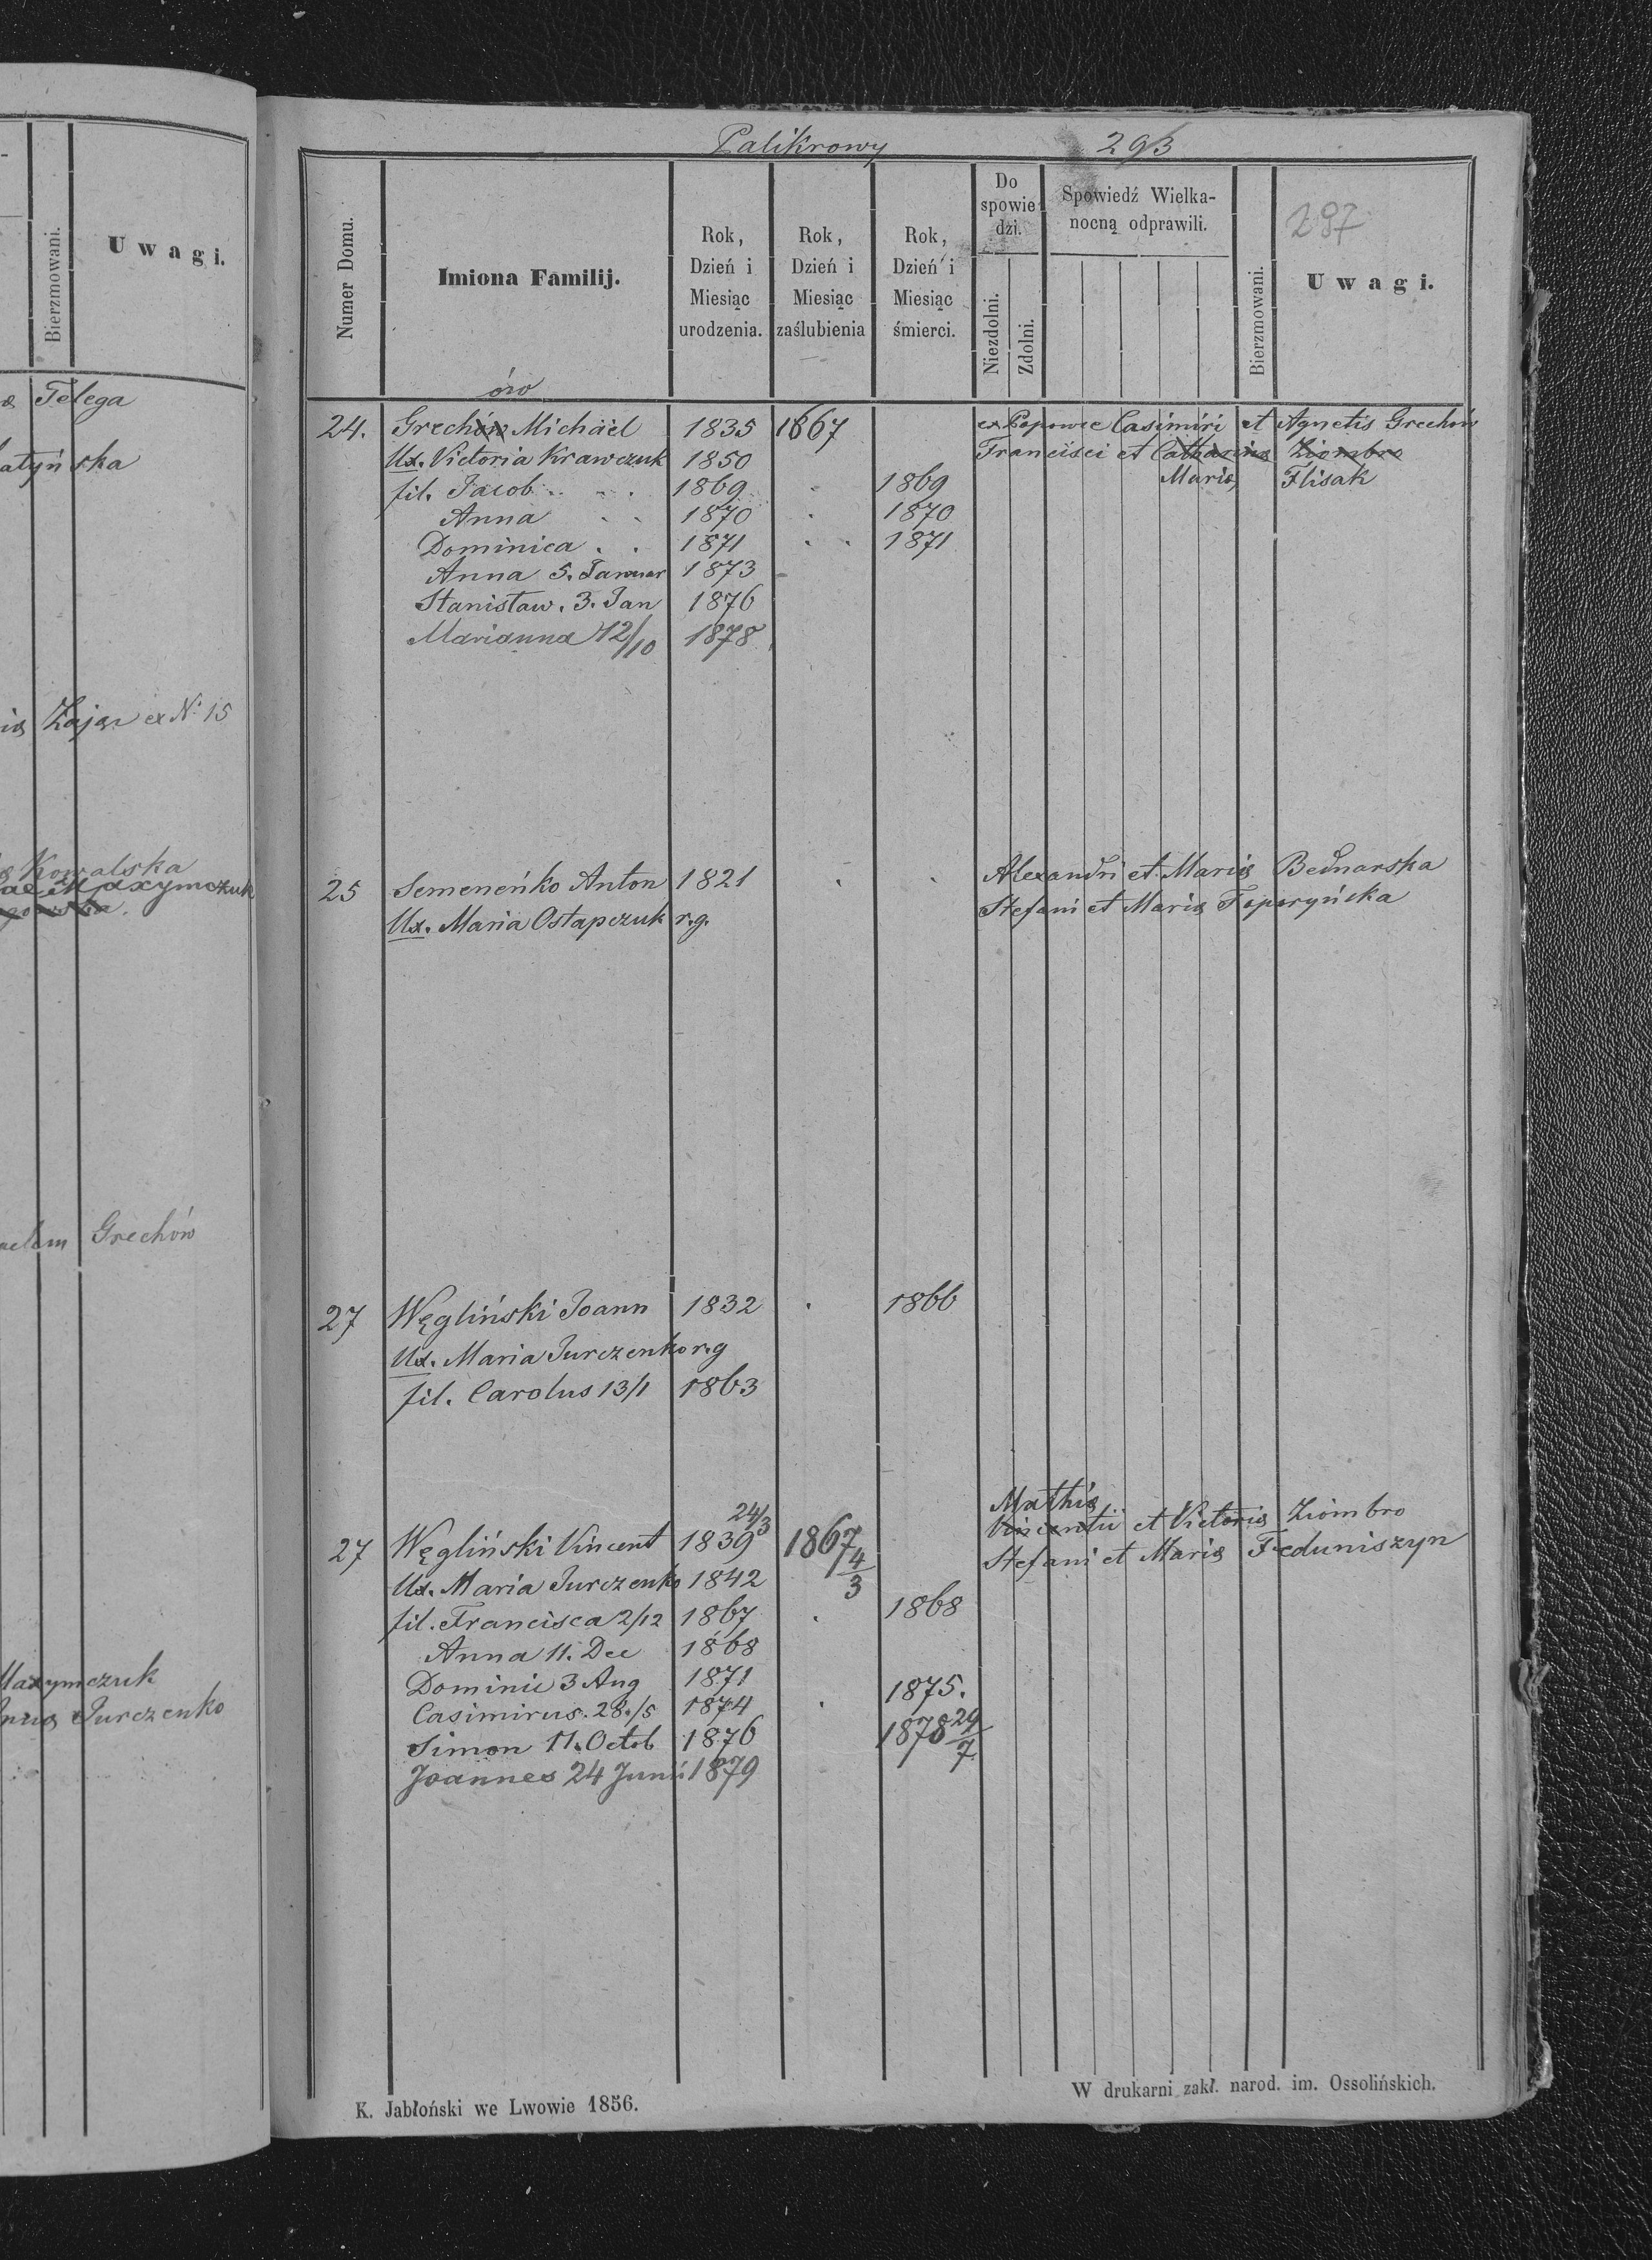 Bierzmowani.
Uwagi.
Telega
ska
Zając ex No 15
Kowalska
Maxymczuk
Grechów
Maxymczuk
Jurczenko
Palikrowy 293
297
Numer Domu.
Imiona Familij.
Rok, Dzień i Miesiąc urodzenia.
Rok, Dzień i Miesiąc zaślubienia
Rok, Dzień i Miesiąc śmierci.
Do spowiedzi.
Niezdolni.
Zdolni.
Spowiedź Wielkanocną odprawili.
Bierzmowani.
Uwagi.
ów
24. Grechów Michäel 1835 1867 ex Popowce Casimiri et Agnetis Grechów
Ux. Victoria Krawczuk 1850 Francisci et Catharina Ziombra
fil. Jacob 1869 1869 Maria, Flisak
Anna 1870 1870
Dominica 1871 1871
Anna 5. Januar 1873
Stanisław. 3. Jan 1876
Marianna 12/10 1878
25 Semeneńko Anton 1821 Alexandri et Maria Bednarska
Ux. Maria Ostapczuk r.g. Stefani et Maria Toporyńska
27 Węgliński Joann 1832 1866
Ux. Maria Jurczenko r.g
fil. Carolus 13/1 1863
24/3 Mathia
27 Węgliński Vincent 1839 1867 4/3 Vincentii et Victoria Ziombro
Ux. Maria Jurczenko 1842 Stefani et Maria Feduniszyn
fil. Francisca 2/12 1867 1868
Anna 11. Dec 1868
Dominic 3 Aug 1871 1875.
Casimirus. 28./5 1874
Simon 11. Octob 1876 1878 29/7
Joannes 24 Junii 1879
K. Jabłoński we Lwowie 1856.
W drukarni zakł. narod. im. Ossolińskich.